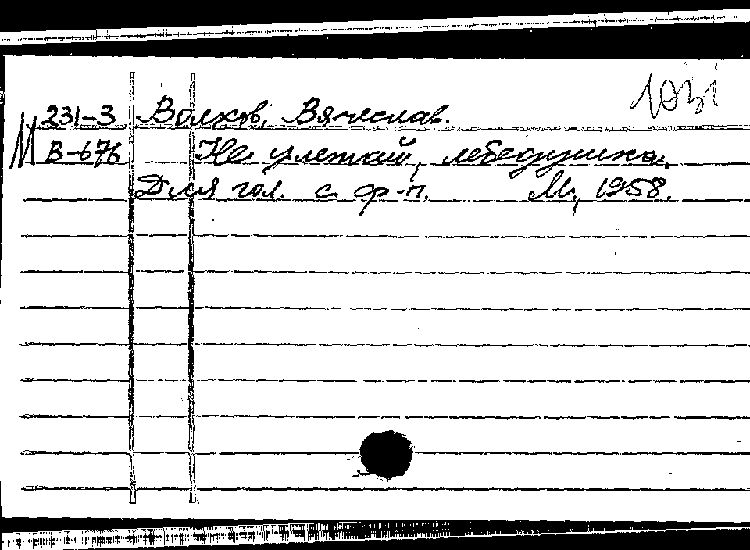 1031
231-3 Волков, Вячеслав.
М В-676 Не улетай, лебедушка.
Для гол. с ф-п. М., 1958.